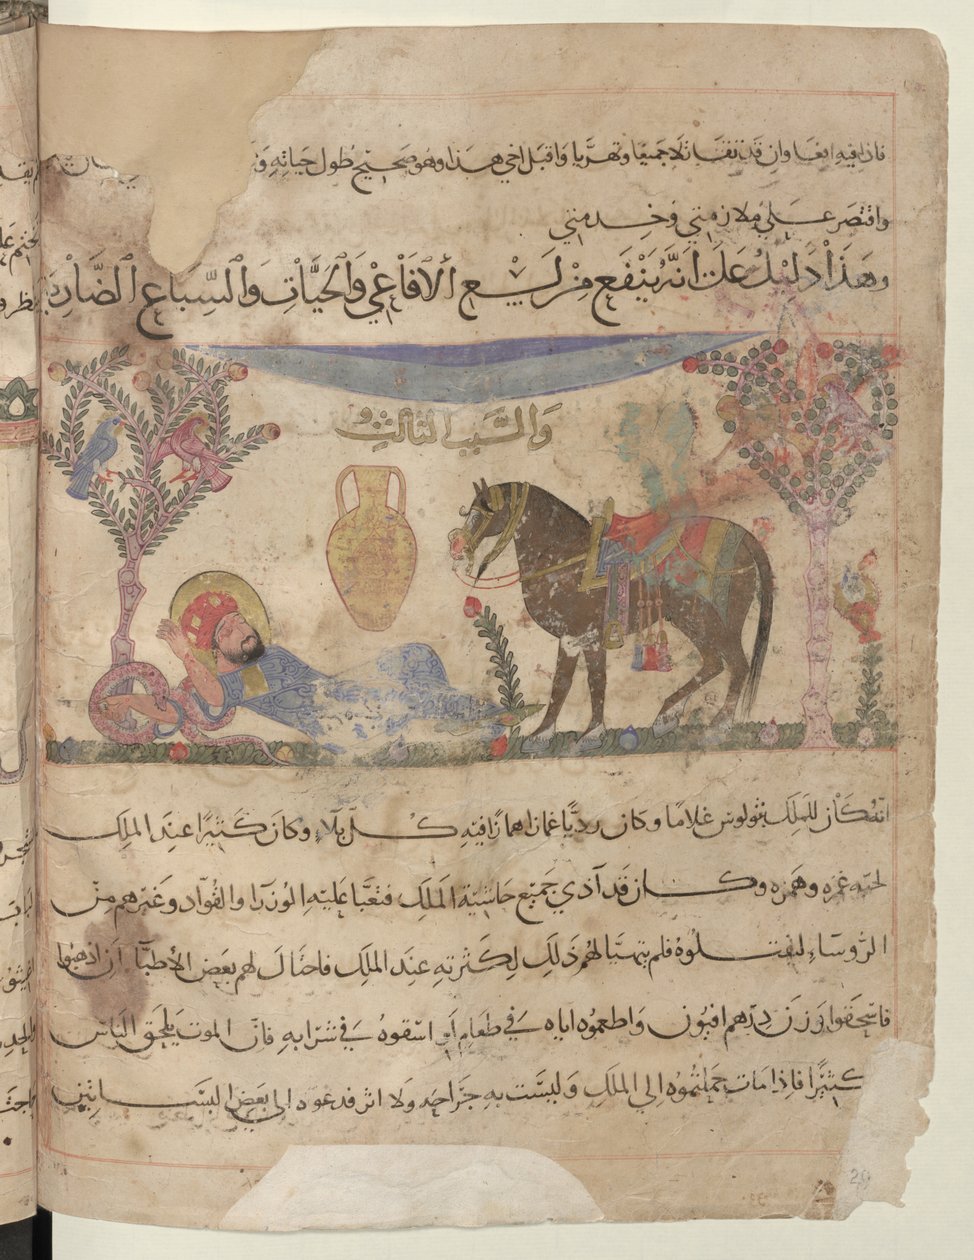 فاذا فيه افعيا وان قد تفتيا جميعا وتهريا واقبل اخي هذا وهو صحيح طول حياته
واقتصر علي ملازمتي وخدمتي
وهذا دليل علي انه ينفع من لسع الافاعي والحيات والسباع الضارية
والسبب الثالث
انه كان للملك بثولوس غلاما وكان رديا غمازا همازا فيه كل بلاء وكان كثيرا عند الملك
غمزه وهمزه وكان قد آذي جميع حاشية الملك فتعبا عليه الوزرا والقواد وغيرهم من
الروساء ليقتلوه فلم يتهيا لهم ذلك لكثرته عند الملك فاحتال لهم بعض الأطبا ان اذهبوا
فاسحقوا وزن درهم افيون واطعموه اياه في طعام او اسقوه في شرابه فان الموت يلحق الناس
كثيرا فاذا مات حملتموه الي الملك وليست به جراحه ولا اثر فدعوه الي بعض البساتين
20